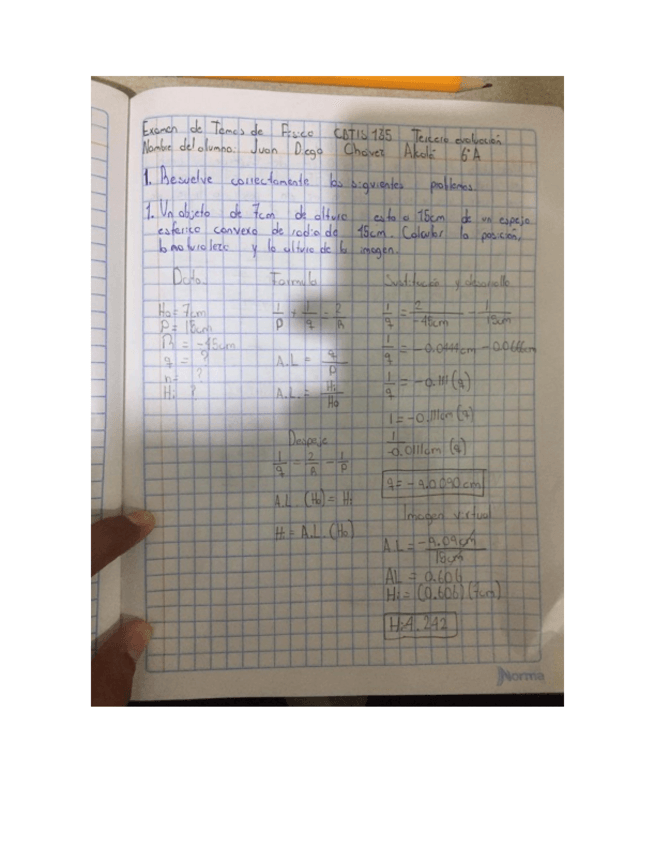 Examen de Temas de Fisica CBTIS 185 Tercera evaluación
Nombre del alumno: Juan Diego Chávez Alcalá 6°A
1. Resuelve correctamente los siguientes problemas
1. Un objeto de 7cm de altura esta a 15cm de un espejo
esferico convexo de radio de 45cm. Calcular la posición,
la naturaleza y la altura de la imagen.
Datos
Ho= 7cm
P= 15cm
R = -45cm
q = ?
n= ?
Hi ?
Formula
1/P + 1/q = 2/R
A.L = q/P
A.L. = Hi/Ho
Despeje
1/q = 2/R - 1/P
A.L. (Ho) = Hi
H = A.L. (Ho)
Sustitución y desarrollo
1/q = 2/-45cm - 1/15cm
1/q = -0.0444cm - 0.0666cm
1/q = -0.111 (q)
1 = -0.111cm (q)
1/-0.0111cm (q)
q = -9.0090 cm
Imagen virtual
A.L = -9.09cm/15cm
AL = 0.606
Hi = (0.606) (7cm)
Hi 4.242
Norma